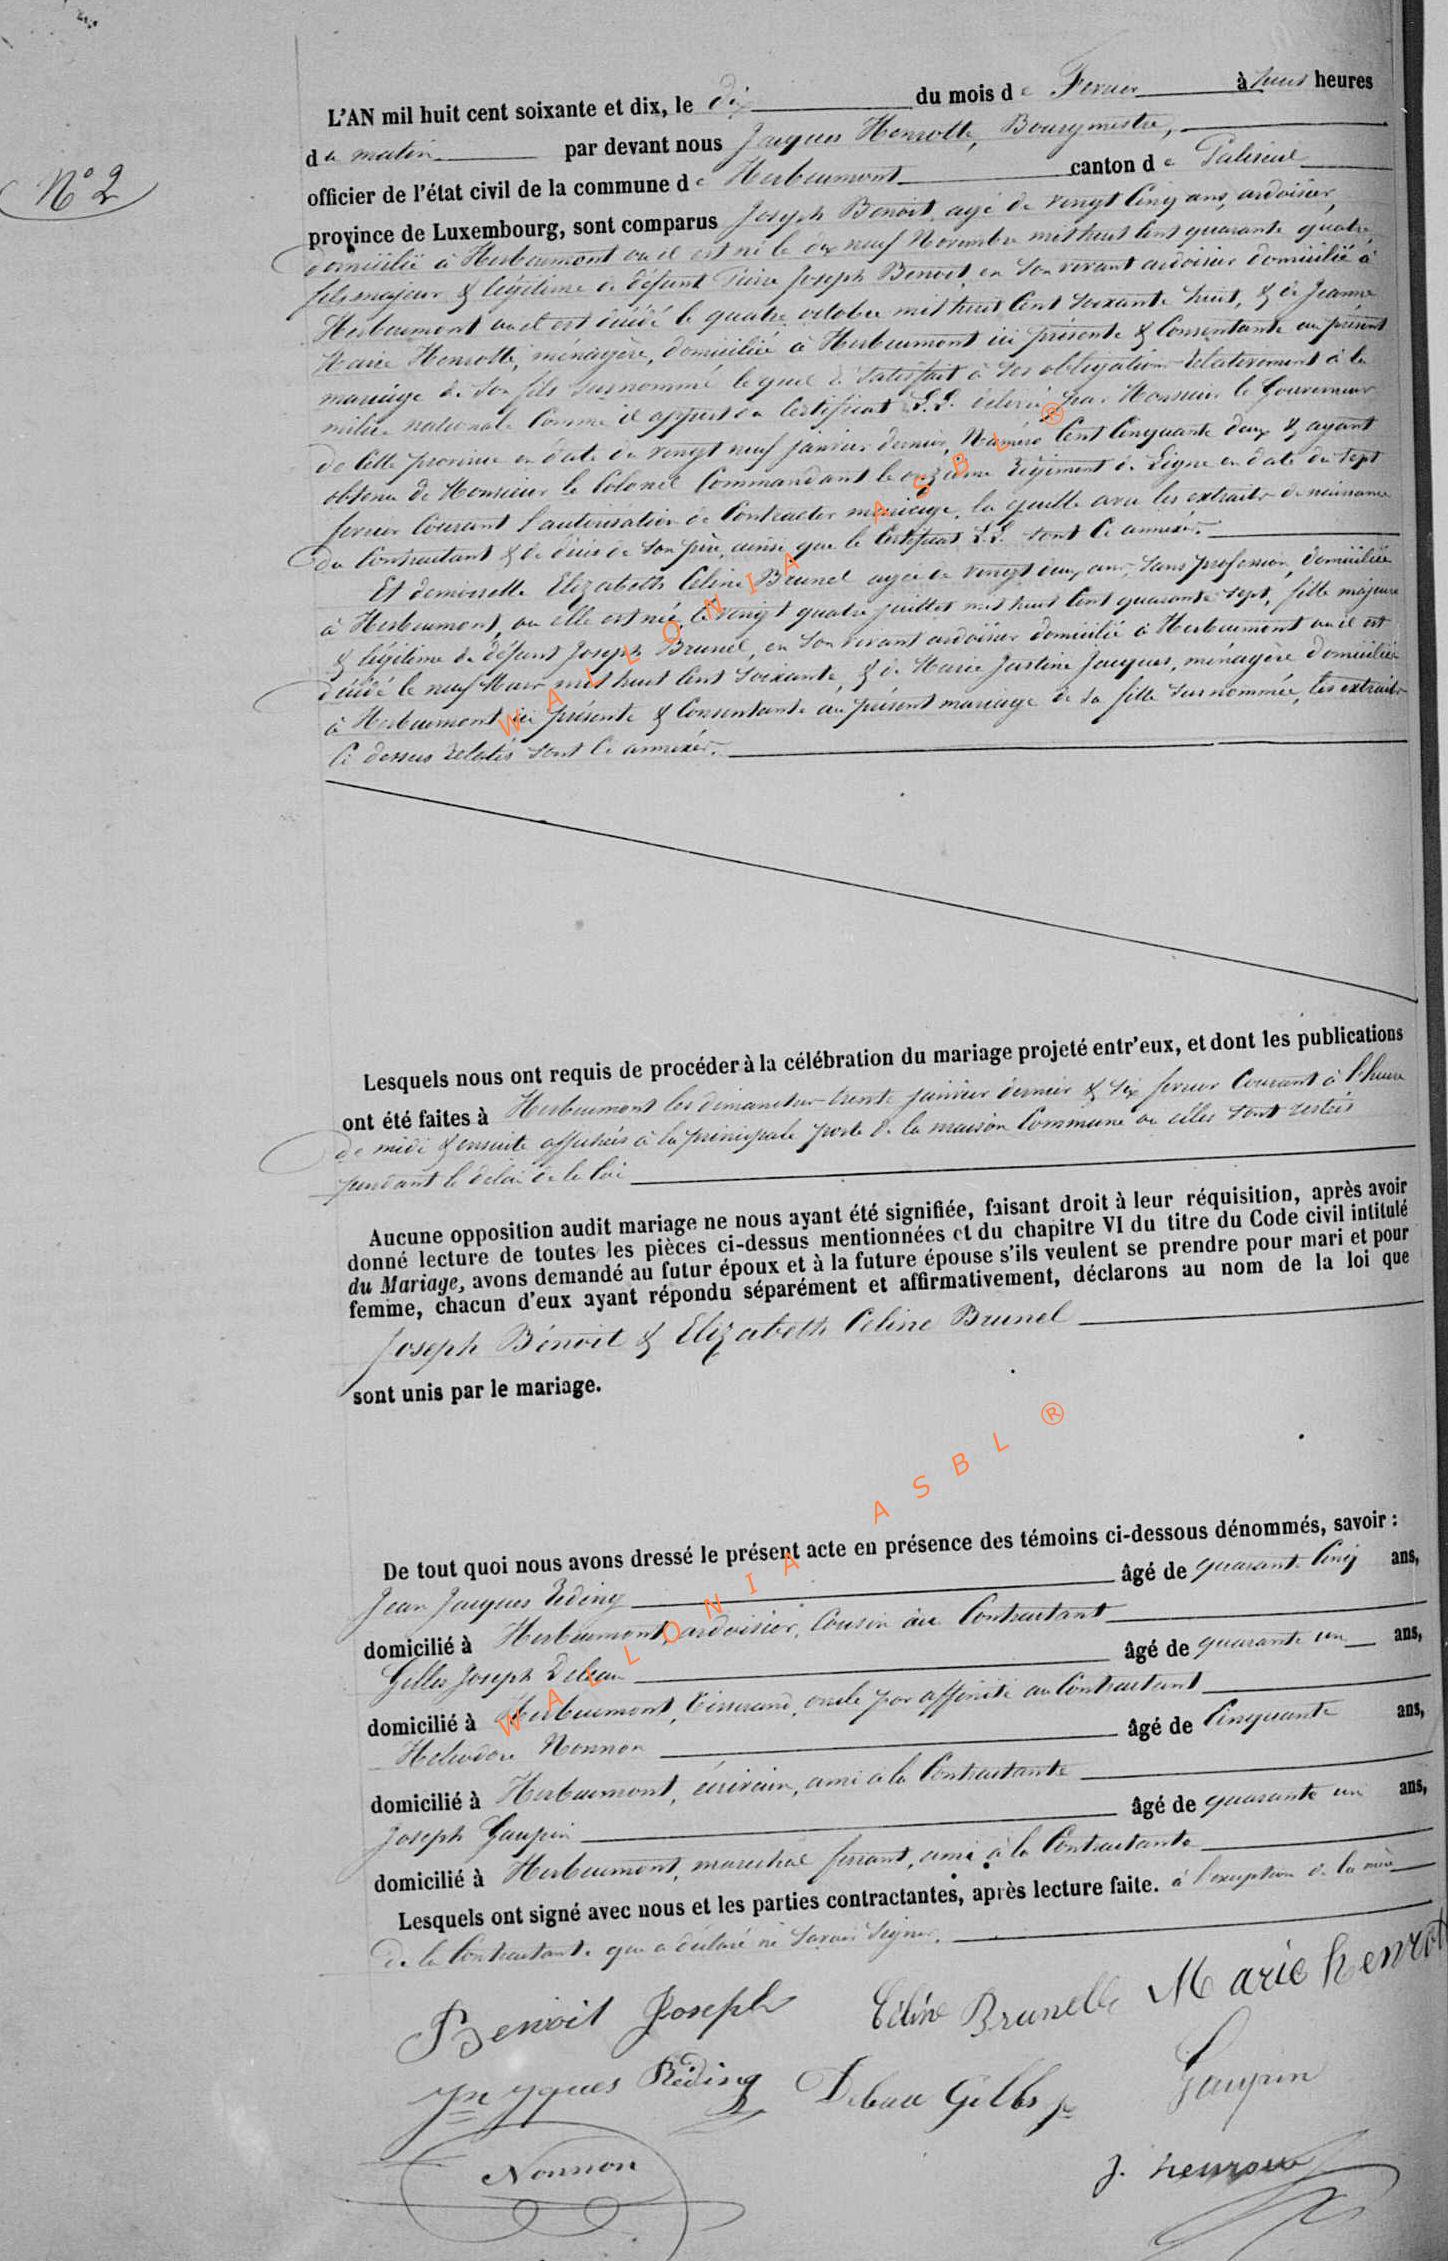 N° 2
L'AN mil huit cent soixante et dix, le dix du mois de Fevrier à heures
du matin par devant nous Jacques Henrotte, Bourgmestre,
officier de l'état civil de la commune de Herbeumont canton de Paliseul
province de Luxembourg, sont comparus Joseph Benoit agé de vingt Cinq ans, ardoisier,
domicilié à Herbeumont ou il est né le dix neuf Novembre mil huit Cent quarante quatre,
fils majeur & légitime de défunt Pierre Joseph Benoit, en son vivant ardoisier domicilié à
Herbeumont ou il est décédé le quatre octobre mil huit Cent soixante huit, & de Jeanne
Marie Henrotte, ménagère, domiciliée à Herbeumont ici présente & Consentante au présent
mariage de son fils surnommé lequel à satisfait à ses obligations relativement à la
milice nationale Comme il appert du Certificat L.L. délivré par Monsieur le Gouverneur
de Cette province en date du vingt neuf janvier dernier, Numéro Cent Cinquante deux & ayant
obtenu de Monsieur le Colonel Commandant le onzième Régiment de Ligne en date du sept
fevrier Courant l'autorisation de Contracter mariage, la quelle avec les extraits de naissance
du Contractant & de décès de son père, ainsi que le Certificat L.L. sont Ci annexés.
Et demoiselle Elizabeth Celine Brunel agée de vingt deux ans, sans profession, domiciliée
à Herbeumont, ou elle est née le vingt quatre juillet mil huit Cent quarante sept, fille majeure
& légitime de défunt Joseph Brunel, en son vivant ardoisier domicilié à Herbeumont ou il est
décédé le neuf Mars mil huit Cent soixante, & de Marie Justine Jacques, ménagère domiciliée
à Herbeumont ici présente & Consentante au présent mariage de sa fille surnommée, les extraits
Ci dessus relatés sont Ci annexés.
Lesquels nous ont requis de procéder à la célébration du mariage projeté entr'eux, et dont les publications
ont été faites à Herbeumont les dimanches trente janvier dernier & six fevrier Courant à l'heure
de midi & ensuite affichées à la principale porte de la maison Commune ou elles sont restées
pendant le délai de la loi
Aucune opposition audit mariage ne nous ayant été signifiée, faisant droit à leur réquisition, après avoir
donné lecture de toutes les pièces ci-dessus mentionnées et du chapitre VI du titre du Code civil intitulé
du Mariage, avons demandé au futur époux et à la future épouse s'ils veulent se prendre pour mari et pour
femme, chacun d'eux ayant répondu séparément et affirmativement, déclarons au nom de la loi que
Joseph Bénoit & Elizabeth Celine Brunel
sont unis par le mariage.
De tout quoi nous avons dressé le présent acte en présence des témoins ci-dessous dénommés, savoir :
Jean Jacques Réding âgé de quarante Cinq ans,
domicilié à Herbeumont, ardoisier, Cousin au Contractant
Gilles Joseph Debau âgé de quarante un ans,
domicilié à Herbeumont, Tisserand, oncle par affinité au Contractant
Heliodore Nonnon âgé de Cinquante ans,
domicilié à Herbeumont, écrivain, ami à la Contractante
Joseph Gaupin âgé de quarante un ans,
domicilié à Herbeumont, marechal ferrant, ami à la Contractante
Lesquels ont signé avec nous et les parties contractantes, après lecture faite. à l'exception de la mère
de la Contractante qui a déclaré ne savoir signer.
Benoit Joseph Céline Brunelle Marie henrott
Jn Jques Réding Debau Gilles J Gaupin
Nonnon J. henrotte
WALLONIA ASBL ®
WALLONIA ASBL ®